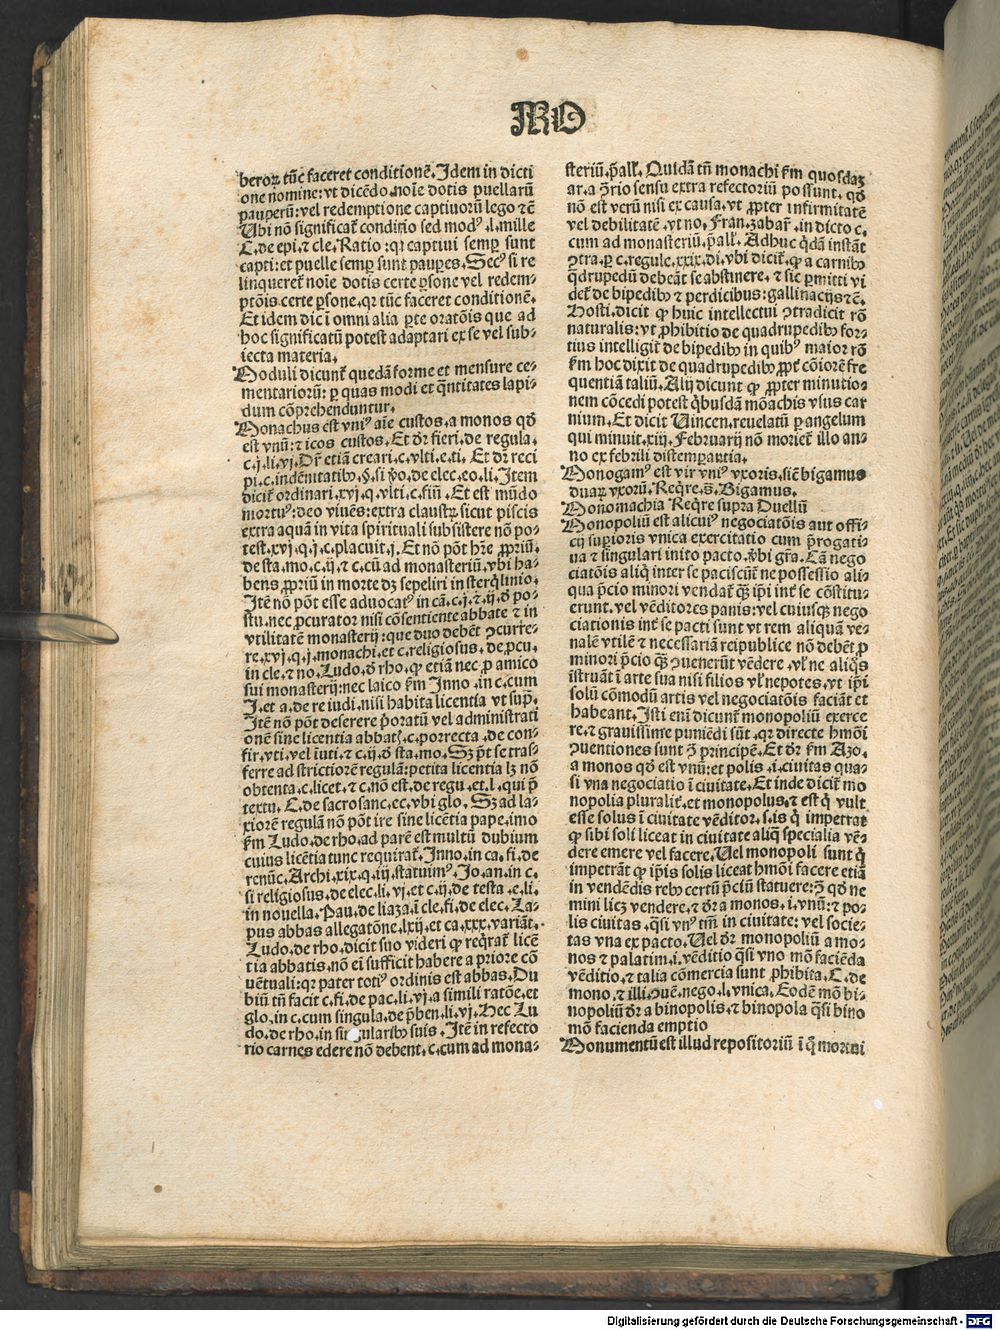 MO
beroꝝ tūc faceret conditionē. Idem in dicti
one nomine: vt dicēdo noīe dotis puellarū
pauperū: vel redemptione captiuorū lego ⁊c̄
Ubi nō significat᷑ conditio sed modꝰ .l. mille
C. de epi. ⁊ cle. Ratio: qꝛ captiui semꝑ sunt
capti: et puelle semꝑ sunt pauꝑes. Secꝰ si re
linqueret᷑ noīe dotis certe ꝑsone vel redem-
ptōis certe ꝑsone. qꝛ tūc faceret conditionē.
Et idem dic ī omni alia ꝑte oratōis que ad
hoc significatū potest adaptari ex se vel sub-
iecta materia.
Moduli dicunt᷑ quedā forme et mensure ce-
mentarioruꝫ: ꝑ quas modi et q̄ntitates lapi-
dum cōprehenduntur.
Monachus est vniꝰ aīe custos. a monos qd̄
est vnū: ⁊ icos custos. Et dr̄ fieri. de regula.
c. j. li. vj. Dr̄ etiā creari. c. vlti. e. ti. Et dr̄ reci
pi. c. indēnitatibꝰ. §. si ꝟo. de elec. eo. li. Item
dicit᷑ ordinari. xvj. q. vlti. c. fiū. Et est mūdo
mortuꝰ: deo viuēs: extra claustꝝ sicut piscis
extra aquā in vita spirituali subsistere nō po-
test. xvj. q. j. c. placuit. j. Et nō pōt hr̄e ꝓpriū.
de sta. mo. c. ij. ⁊ c. cū ad monasteriū. vbi ha-
bens ꝓpriū in morte dꝫ sepeliri in sterq̄linio.
Itē nō pōt esse aduocatꝰ in cā. c. j. ⁊ ij. d̄ po-
stu. nec ꝓcurator nisi cōsentiente abbate ⁊ in
vtilitatē monasterij: que duo debēt ꝯcurre-
re. xvj. q. j. monachi. et c. religiosus. de ꝓcu.
in cle. ⁊ no. Ludo. d̄ rho. ꝙ etiā nec ꝓ amico
sui monasterij: nec laico ẜm Inno. in c. cum
I. et a. de re iudi. nisi habita licentia vt supᷓ.
Itē nō pōt deserere p̄oratū vel administrati
onē sine licentia abbatꝭ. c. porrecta. de con-
fir. vti. vel īuti. ⁊ c. ij. d̄ sta. mo. Sꝫ pōt se trāſ-
ferre ad strictiorē regulā: petita licentia lꝫ nō
obtenta. c. licet. ⁊ c. nō est. de regu. et. l. qui p̄
textu. C. de sacrosanc. ec. vbi glo. Sꝫ ad la-
xiorē regulā nō pōt ire sine licētia pape. imo
ẜm Ludo. de rho. ad parē est multū dubium
cuius licētia tunc requirat᷑. Inno. in ca. fi. de
renūc. Archi. xix. q. iij. statuimꝰ. Io. an. in c.
si religiosus. de elec. li. vj. et c. ij. de testa. e. li.
in nouella. Pau. de liaza. ī cle. fi. de elec. La-
pus abbas allegatōne. lxij. et ca. xxx. variāt.
Ludo. de rho. dicit suo videri ꝙ req̄rat᷑ licē
tia abbatis. nō eī sufficit habere a priore cō
uētuali: qꝛ pater totiꝰ ordinis est abbas. Du
biū tn̄ facit c. fi. de pac. li. vj. a simili ratōe. et
glo. in c. cum singula. de p̄ben. li. vj. Hec Lu
do. de rho. in singularibꝰ suis. Itē in refecto
rio carnes edere nō debent. c. cum ad mona-
steriū. p̄all᷑. Quidā tn̄ monachi ẜm quosdaꝫ
ar. a ꝯ̄rio sensu extra refectoriū possunt. qd̄
nō est verū nisi ex causa. vt ꝓpter infirmitatē
vel debilitatē. vt no. Fran. zabar᷑. in dicto c.
cum ad monasteriū. p̄all᷑. Adhuc q̄dā instāt
ꝯtra. ꝑ c. regule. xxix. di. vbi dicit᷑. ꝙ a carnibꝰ
q̄drupedū debeāt se abstinere. ⁊ sic ꝑmitti vi
det᷑ de bipedibꝰ ⁊ perdicibus: gallinacijs ⁊c̄.
Hosti. dicit ꝙ huic intellectui ꝯtradicit rō
naturalis: vt ꝓhibitio de quadrupedibꝰ for-
tius intelligit᷑ de bipedibꝰ in quibꝰ maior rō
ẜm hoc dixit de quadrupedibꝰ ꝓpt᷑ cōiorē fre
quentiā taliū. Alij dicunt ꝙ ꝓpter minutio-
nem cōcedi potest q̄busdā mōachis vsus car
nium. Et dicit Uincen. reuelatū ꝑ angelum
qui minuit. xiij. Februarij nō moriet᷑ illo an-
no ex febrili distemꝑantia.
Monogamꝰ est vir vniꝰ vxoris. sic̄ bigamus
duaꝝ vxorū. Req̄re. s̄. Bigamus.
Monomachia Req̄re supra Duellū
Monopoliū est alicuiꝰ negociatōis aut offi-
cij suꝑioris vnica exercitatio cum p̄rogati-
ua ⁊ singulari inito pacto. ꝟbi gr̄a. Cā nego
ciatōis aliq̄ inter se paciscūt᷑ ne possessio ali-
qua p̄cio minori vendat᷑ qꝫ ip̄i int᷑ se cōstitu-
erunt. vel vēditores panis: vel cuiusqꝫ nego
ciationis int᷑ se pacti sunt vt rem aliquā ve-
nalē vtilē ⁊ necessariā reipublice nō debēt ꝓ
minori p̄cio qꝫ ꝯuenerūt vēdere. vl᷑ ne aliq̄s
istruāt ī arte sua nisi filios vl᷑ nepotes. vt ip̄i
solū cōmodū artis vel negociatōis faciāt et
habeant. Isti enī dicunt᷑ monopoliū exerce
re. ⁊ grauissime puniēdi sūt. qꝛ directe hmōi
ꝯuentiones sunt ꝯ̄ principē. Et dr̄ ẜm Azo.
a monos qd̄ est vnū: et polis. i. ciuitas qua-
si vna negociatio ī ciuitate. Et inde dicit᷑ mo
nopolia pluralit᷑. et monopolus. ⁊ est q̇ vult
esse solus ī ciuitate vēditor. s. is q̇ impetrat
ꝙ sibi soli liceat in ciuitate aliq̄ specialia vē-
dere emere vel facere. Uel monopoli sunt q̇
impetrāt ꝙ ip̄is solis liceat hmōi facere etiā
in vendēdis rebꝰ certū p̄ciū statuere: ꝯ̄ qd̄ ne
mini licꝫ vendere. ⁊ dr̄ a monos. i. vnū: ⁊ po-
lis ciuitas. q̄si vnꝰ tm̄ in ciuitate: vel socie-
tas vna ex pacto. Uel dr̄ monopoliū a mo-
nos ⁊ palatim. i. vēditio q̄si vno mō faciēda
vēditio. ⁊ talia cōmercia sunt ꝓhibita. C. de
mono. ⁊ illi. ꝯuē. nego. l. vnica. Eodē mō bi-
nopoliū dr̄ a binopolis. ⁊ binopola q̄si bino
mō facienda emptio
Monumentū est illud repositoriū ī q̊ mortui
Digitalisierung gefördert durch die Deutsche Forschungsgemeinschaft - DFG